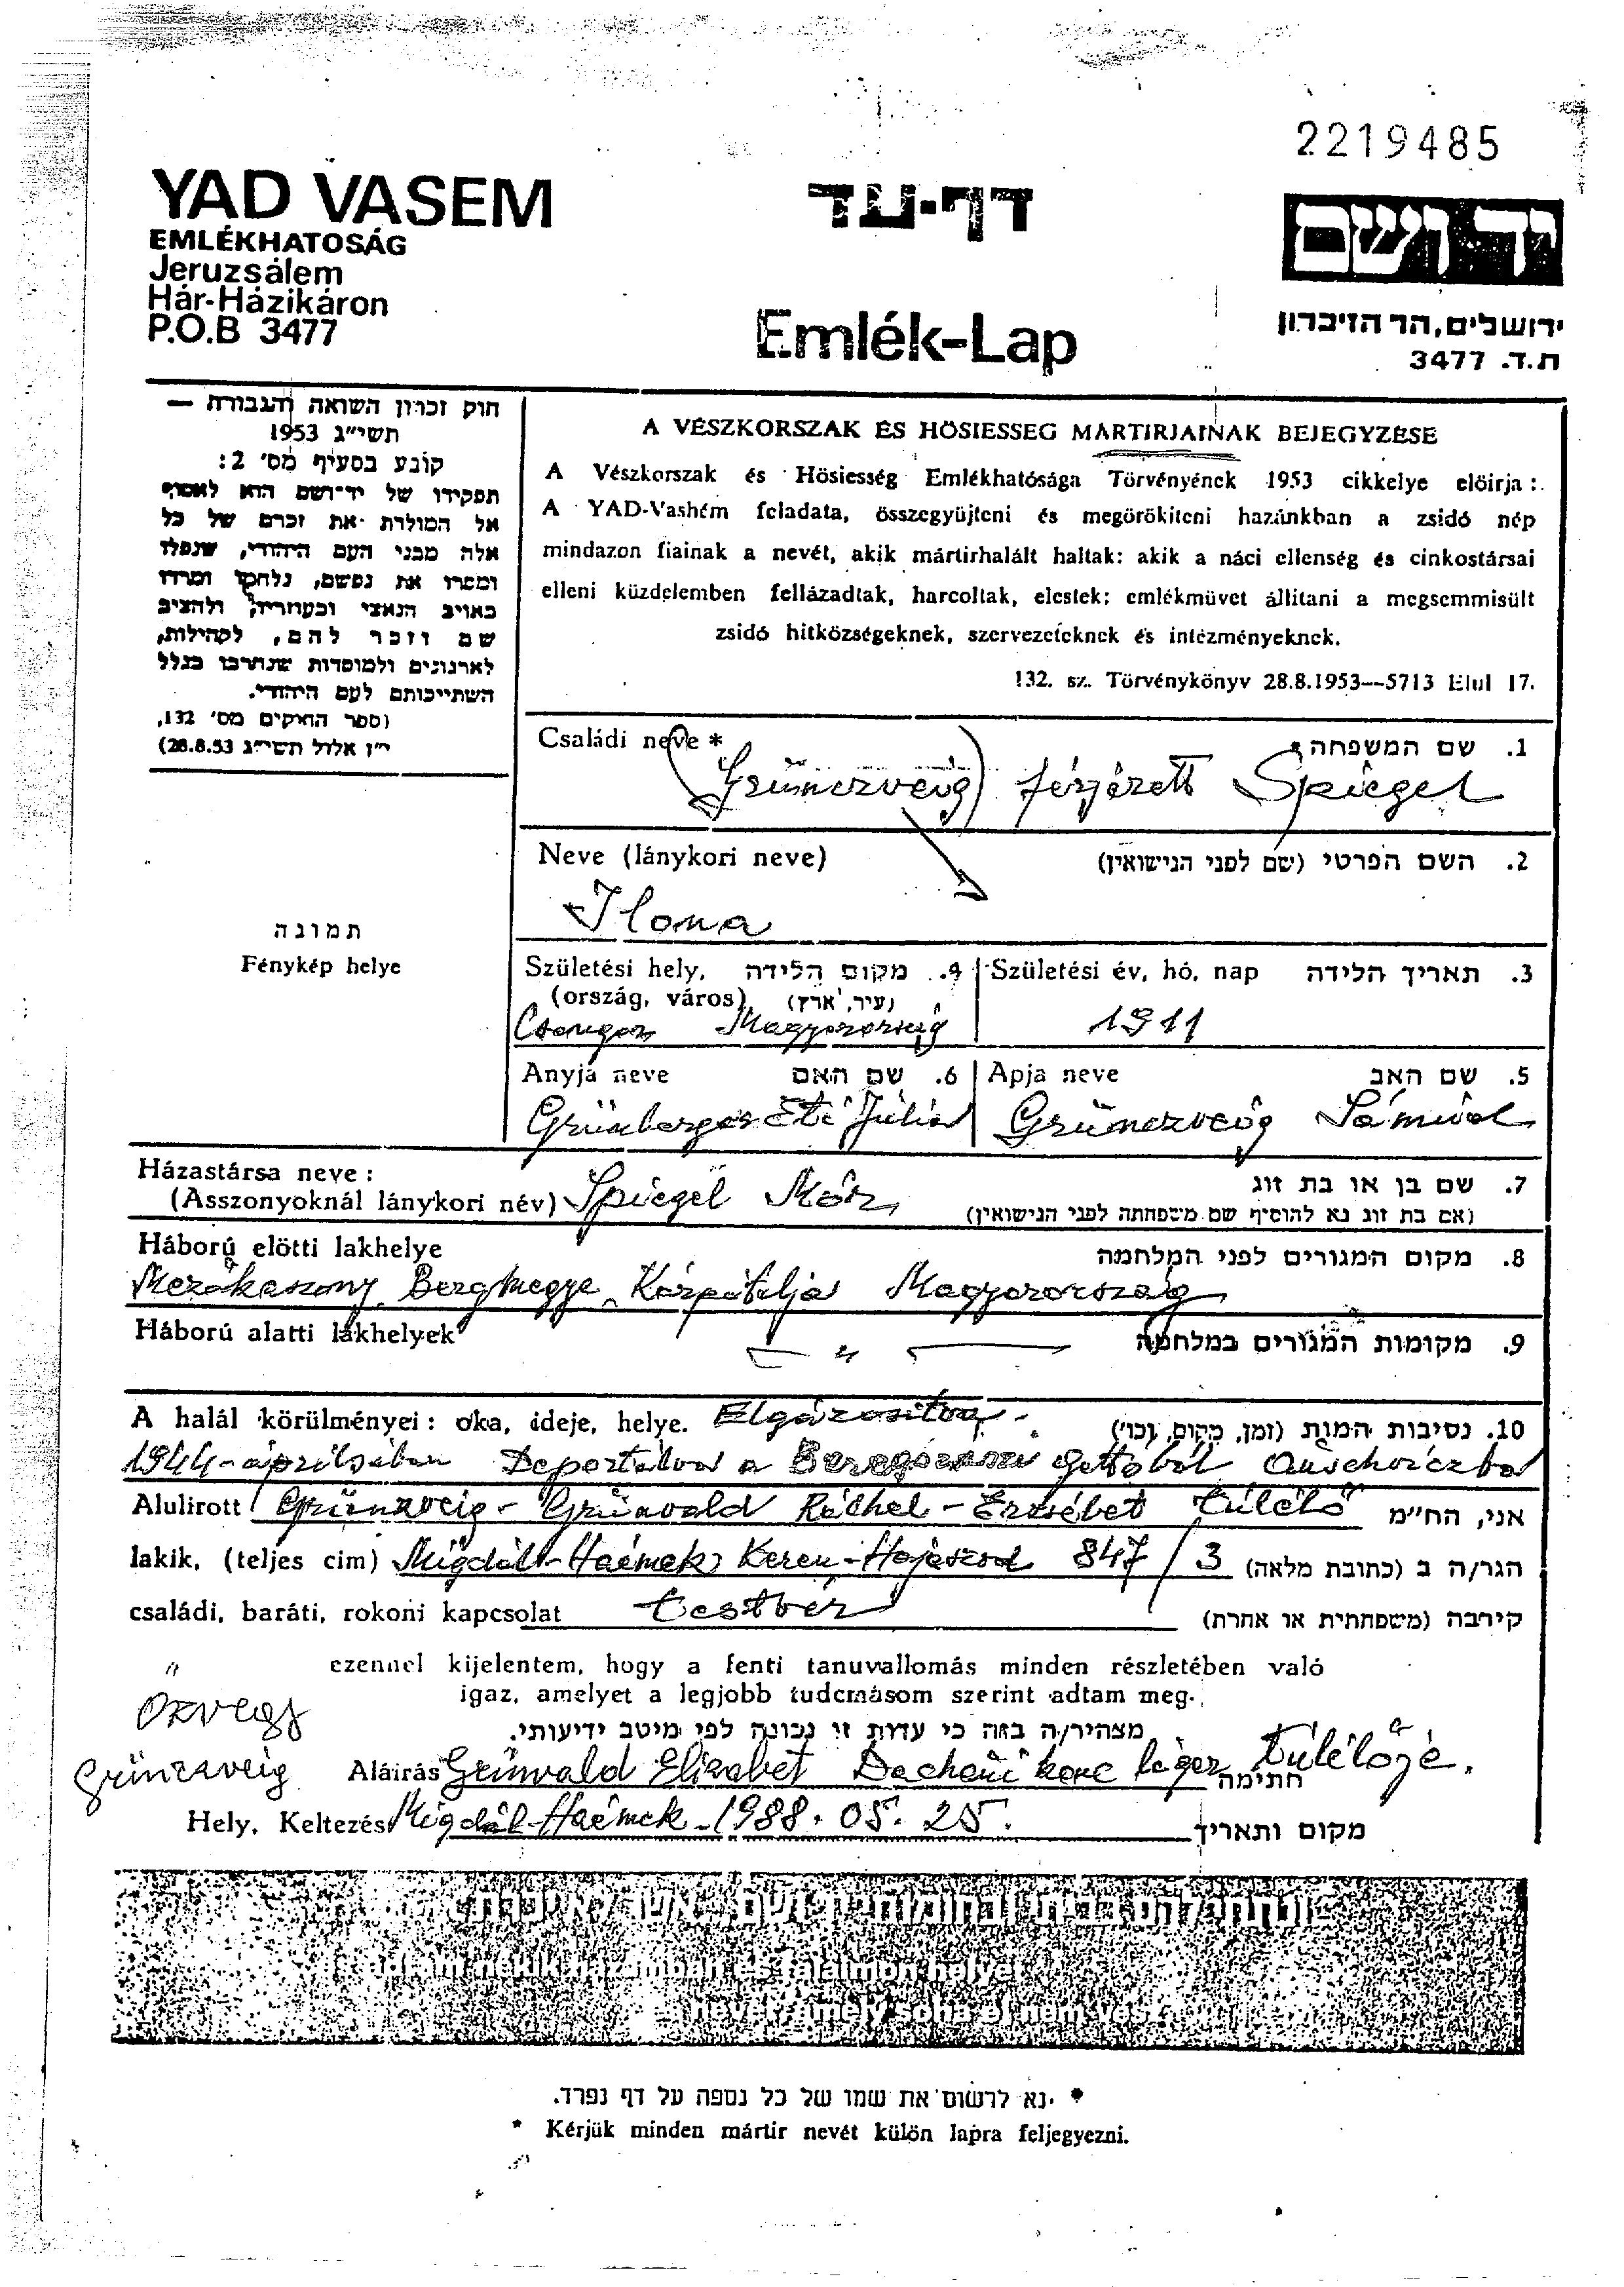 2219485
YAD VASEM
EMLÉKHATOSÁG
Jeruzsálem
Hár-Házikáron
P.O.B 3477
דף-עד
Emlék-Lap
יד ושם
ירושלים, הר הזיכרון
ת.ד. 3477
חוק זכרון השואה והגבורה —
תשי״ג 1953
קובע בסעיף מס' 2:
תפקידו של יד־ושם הוא לאסוף
אל המולדת את זכרם של כל
אלה מבני העם היהודי, שנפלו
ומסרו את נפשם, נלחמו ומרדו
באויב הנאצי ובעוזריו, ולהציב
שם וזכר להם, לקהילות,
לארגונים ולמוסדות שנחרבו בגלל
השתייכותם לעם היהודי.
(ספר החוקים מס' 132,
י״ז אלול תשי״ג 28.8.53)
A VÉSZKORSZAK ÉS HŐSIESSÉG MÁRTIRJAINAK BEJEGYZÉSE
A Vészkorszak és Hösiesség Emlékhatósága Törvényének 1953 cikkelye elöirja:
A YAD-Vashém feladata, összegyüjteni és megörökiteni hazánkban a zsidó nép
mindazon fiainak a nevét, akik mártirhalált haltak: akik a náci ellenség és cinkostársai
elleni küzdelemben fellázadtak, harcoltak, elestek; emlékmüvet állitani a megsemmisült
zsidó hitközségeknek, szervezeteknek és intézményeknek.
132. sz. Törvénykönyv 28.8.1953--5713 Elul 17.
Családi neve *
1. שם המשפחה *
(Grünczveig) férjezett Spiegel
Neve (lánykori neve)
2. השם הפרטי (שם לפני הנישואין)
Ilona
תמונה
Fénykép helye
Születési hely, 4. מקום הלידה
(ország, város) (עיר, ארץ)
Csenger Magyarország
Születési év, hó, nap 3. תאריך הלידה
1911
Anyja neve 6. שם האם
Grünberger Eti Júlia
Apja neve 5. שם האב
Grünczveig Sámuel
Házastársa neve:
(Asszonyoknál lánykori név) Spiegel Mór
7. שם בן או בת זוג
(אם בת זוג נא להוסיף שם משפחתה לפני הנישואין)
Háború elötti lakhelye
8. מקום המגורים לפני המלחמה
Mezőkaszony Beregmegye Kárpátalja Magyarország
Háború alatti lakhelyek
9. מקומות המגורים במלחמה
— " —
A halál körülményei: oka, ideje, helye. Elgázositva.
10. נסיבות המות (זמן, מקום, וכו')
1944-áprilsában Deportálva a Beregszászi gettóból Auschviczba
Alulirott Grünzveig - Grünvald Ráchel - Erzsébet túlélő אני, הח״מ
lakik, (teljes cim) Migdál-Haémek Keren-Hajeszod 847/3 הגר/ה ב (כתובת מלאה)
családi, baráti, rokoni kapcsolat testvér קירבה (משפחתית או אחרת)
ezennel kijelentem, hogy a fenti tanuvallomás minden részletében való
igaz, amelyet a legjobb tudomásom szerint adtam meg.
מצהיר/ה בזה כי עדות זו נכונה לפי מיטב ידיעותי.
özvegy
Grünzveig
Aláirás Grünvald Elizabet Dachaui konc láger túlélője.
חתימה
Hely. Keltezés Migdál-Haémek - 1988. 05. 25. מקום ותאריך
* נא לרשום את שמו של כל נספה על דף נפרד.
* Kérjük minden mártir nevét külön lapra feljegyezni.